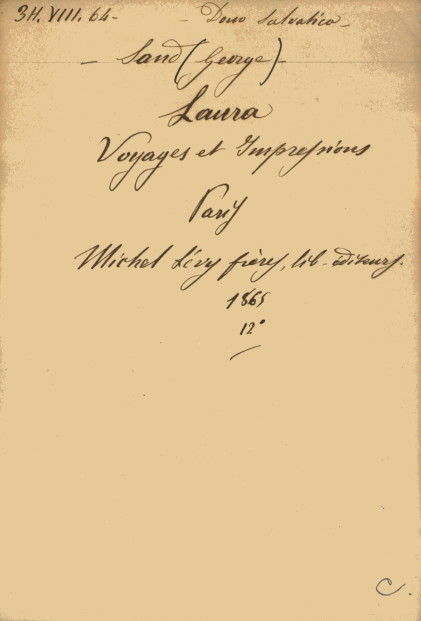 3H. VIII. 64 - - Dono Salvatico -
- Sand (George) -
Laura
Voyages et Impressions
Paris
Michel Lévy frères, lib-éditeurs.
1865
12°
C.